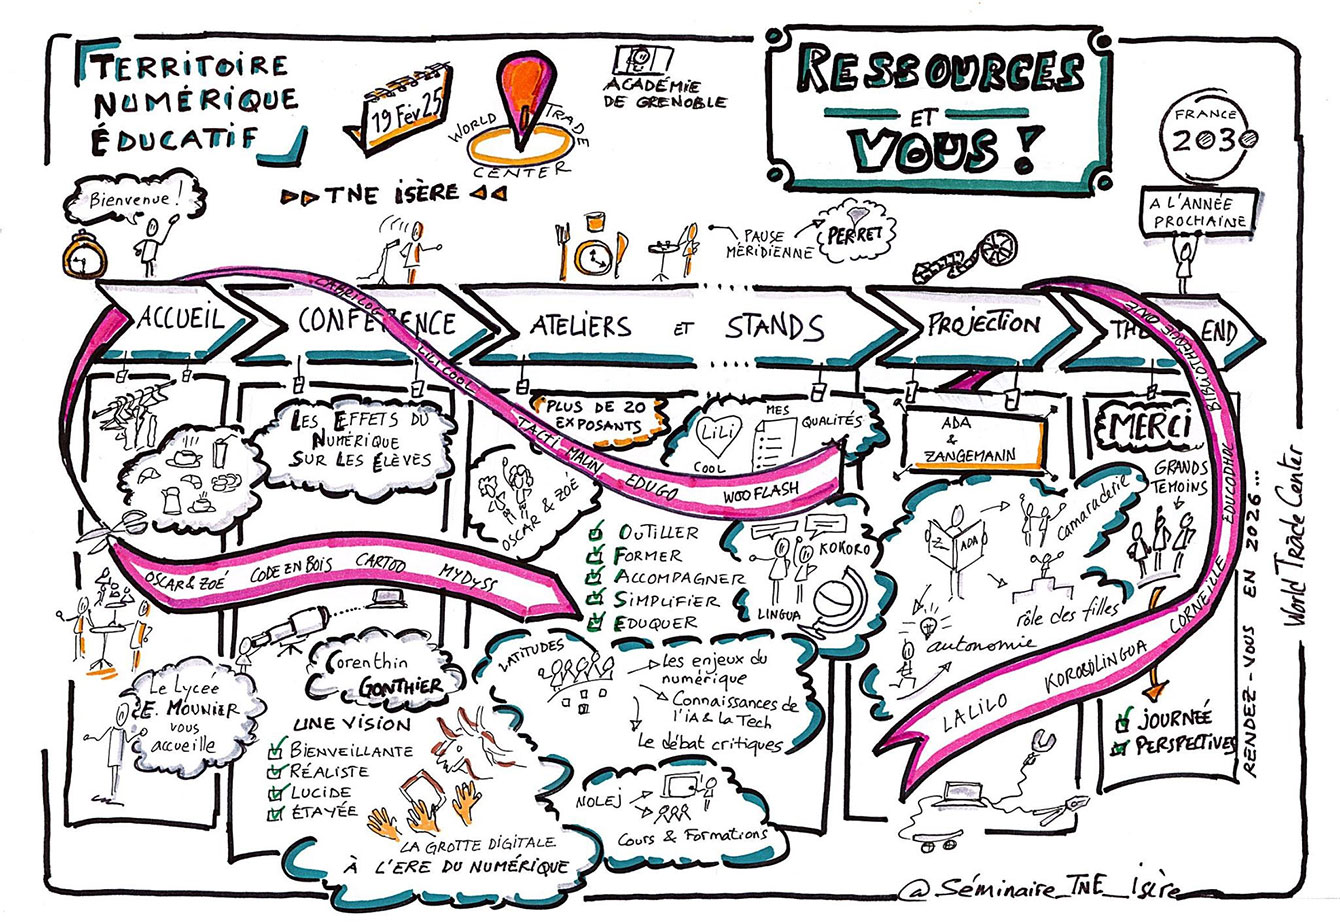 TERRITOIRE
NUMÉRIQUE
ÉDUCATIF
19 Fév 25
WORLD TRADE
CENTER
ACADÉMIE
DE GRENOBLE
RESSOURCES
ET
VOUS !
FRANCE
2030
A L'ANNÉE
PROCHAINE
Bienvenue !
TNE ISÈRE
PAUSE
MÉRIDIENNE
PERRET
ACCUEIL
CONFÉRENCE
ATELIERS ET STANDS
PROJECTION
THE END
LILI COOL
TACTI MALIN
EDUGO
WOOFLASH
BIBLIOTHEQUE ONE
EDUCODHOL
CORNEILLE
KOKOROLINGUA
LALILO
OSCAR & ZOÉ
CODE EN BOIS
CARTOO
MYDYSS
LES EFFETS DU
NUMÉRIQUE
SUR LES ÉLÈVES
PLUS DE 20
EXPOSANTS
OSCAR & ZOÉ
LILI
COOL
MES
QUALITÉS
OUTILLER
FORMER
ACCOMPAGNER
SIMPLIFIER
EDUQUER
KOKORO
LINGUA
ADA
&
ZANGEMANN
ADA
camaraderie
rôle des filles
autonomie
MERCI
GRANDS
TEMOINS
JOURNÉE
PERSPECTIVES
RENDEZ-VOUS EN 2026...
WORLD TRADE CENTER
Le Lycée
E. MOUNIER
vous
accueille
Corenthin
GONTHIER
UNE VISION
BIENVEILLANTE
RÉALISTE
LUCIDE
ÉTAYÉE
LA GROTTE DIGITALE
À L'ERE DU NUMÉRIQUE
LATITUDES
les enjeux du
numérique
Connaissances de
l'ia & la Tech
le débat critiques
NOLEJ
Cours & Formations
@Séminaire_TNE_Isère